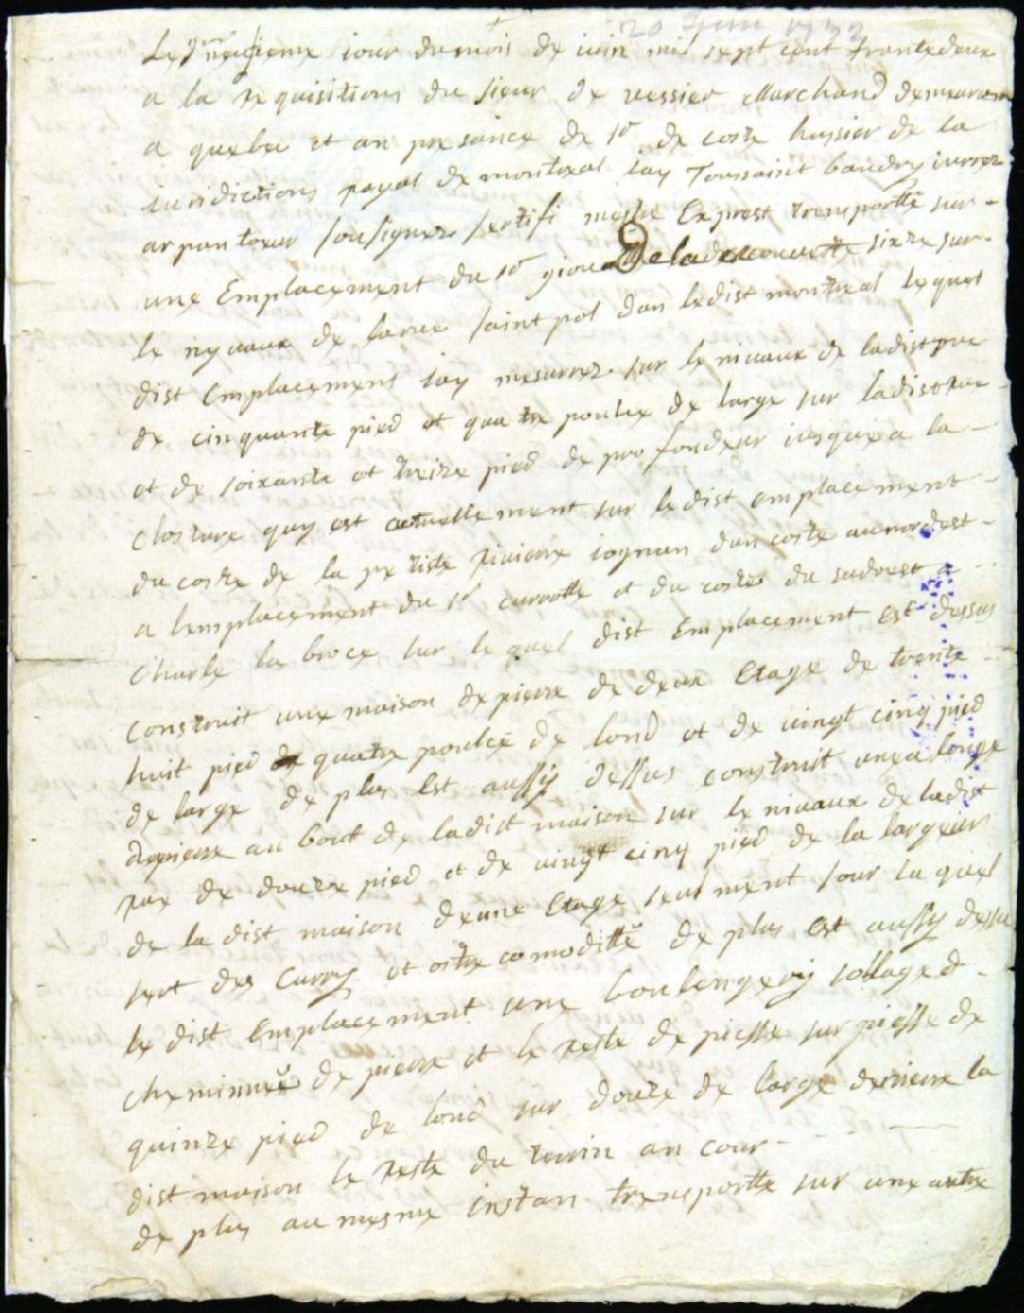 20 juin 1732
Le d neufieme jour du mois de iuin mil sept cent trante deux
a la requisitions du sieur de vessier Marchand demeuran
a quebec et an presance de sr de coste hussier de la
iuridictions rayal de montreal iay Toussaint baudry iurrez
arpanteur sousignez sertifi mestre Exprest transportté sur
une Emplacement du sr de ladescouverte sizze sur
le nyvaux de larue saint pol dan ledist montreal lequel
dist Emplacement iay mesurrez sur le nivaux de ladist rue
de cinquante pied et quatre poulce de large sur ladist rue
et de soixante et treize pied de profondeur iusquxa la
closture quy est actuellement sur ledist emplacement
du coste de la petiste Riviere iognan dun coste aunordest
a lemplacement du sr curotte et du coste du sudouest a
Charle la broce sur lequel dist Emplacement est dessus
construit une maison de pierre de deux Etage de trente
huit pied quatre poulce de lond et de vingt cinq pied
de large de plus Est aussy dessus construit une alonge
depierre au bout de ladist maison sur le nivaux de ladist
rue de douze pied et de vingt cinq pied de la largeur
de la dist maison deune Etage seulment sour laquel
sert des Cavvy et ostre comoditté de plus Est aussy dessu
le dist Emplacement une boulengery sollage et
cheminné de pierre et le reste de piesse sur piesse de
quinze pied de lond sur douze de large deriere la
dist maison le reste du terrin an cour
de plus aumesme instan transportte sur une autre